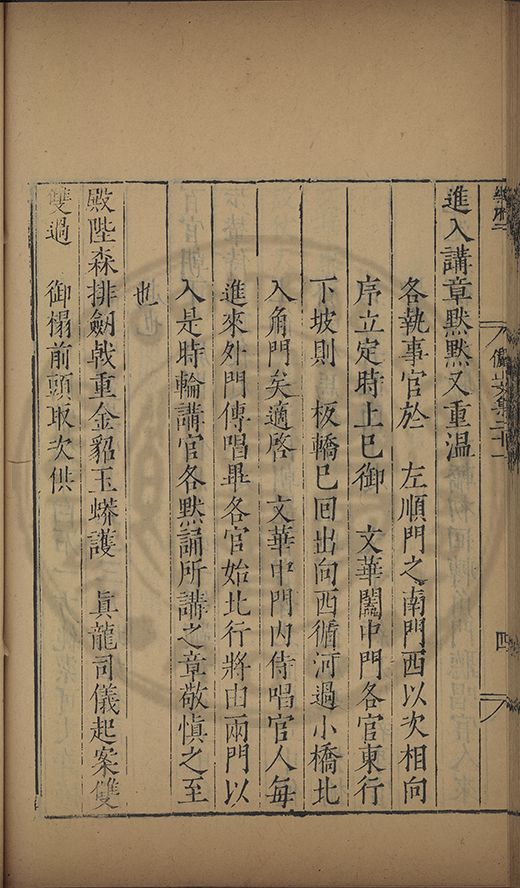 儼山文集二十一
四
進入講章默默又重温
各執事官於 左順門之南門西以次相向
序立定時上已御 文華閣中門各官東行
下坡則 板轎已回出向西循河過小橋北
入角門矣適啓 文華中門内侍唱官人每
進來外門傳唱畢各官始北行將由兩門以
入是時輪講官各黙誦所講之章敬慎之至
也
殿陛森排劒戟重金貂玉蟒護 眞龍司儀起案雙
雙過 御榻前頭取次供